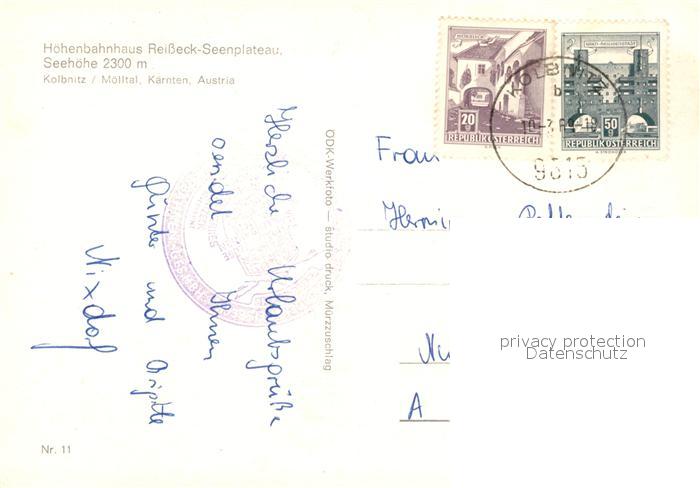 Höhenbahnhaus Reißeck-Seenplateau,
Seehöhe 2300 m
Kolbnitz / Mölltal, Kärnten, Austria
Herzliche Urlaubsgrüße
sendet Ihnen
Günter und Brigitte
Nixdorf
Nr. 11
ODK-Werkfoto — studio druck, Mürzzuschlag
20 g
REPUBLIK ÖSTERREICH
50 g
REPUBLIK ÖSTERREICH
KOLBNITZ
b
9815
Frau
A
privacy protection
Datenschutz